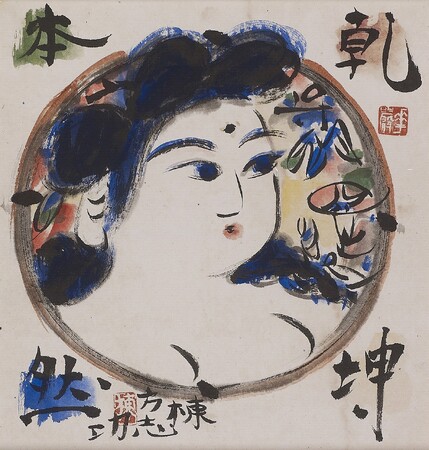 乾坤
本然
棟方志功